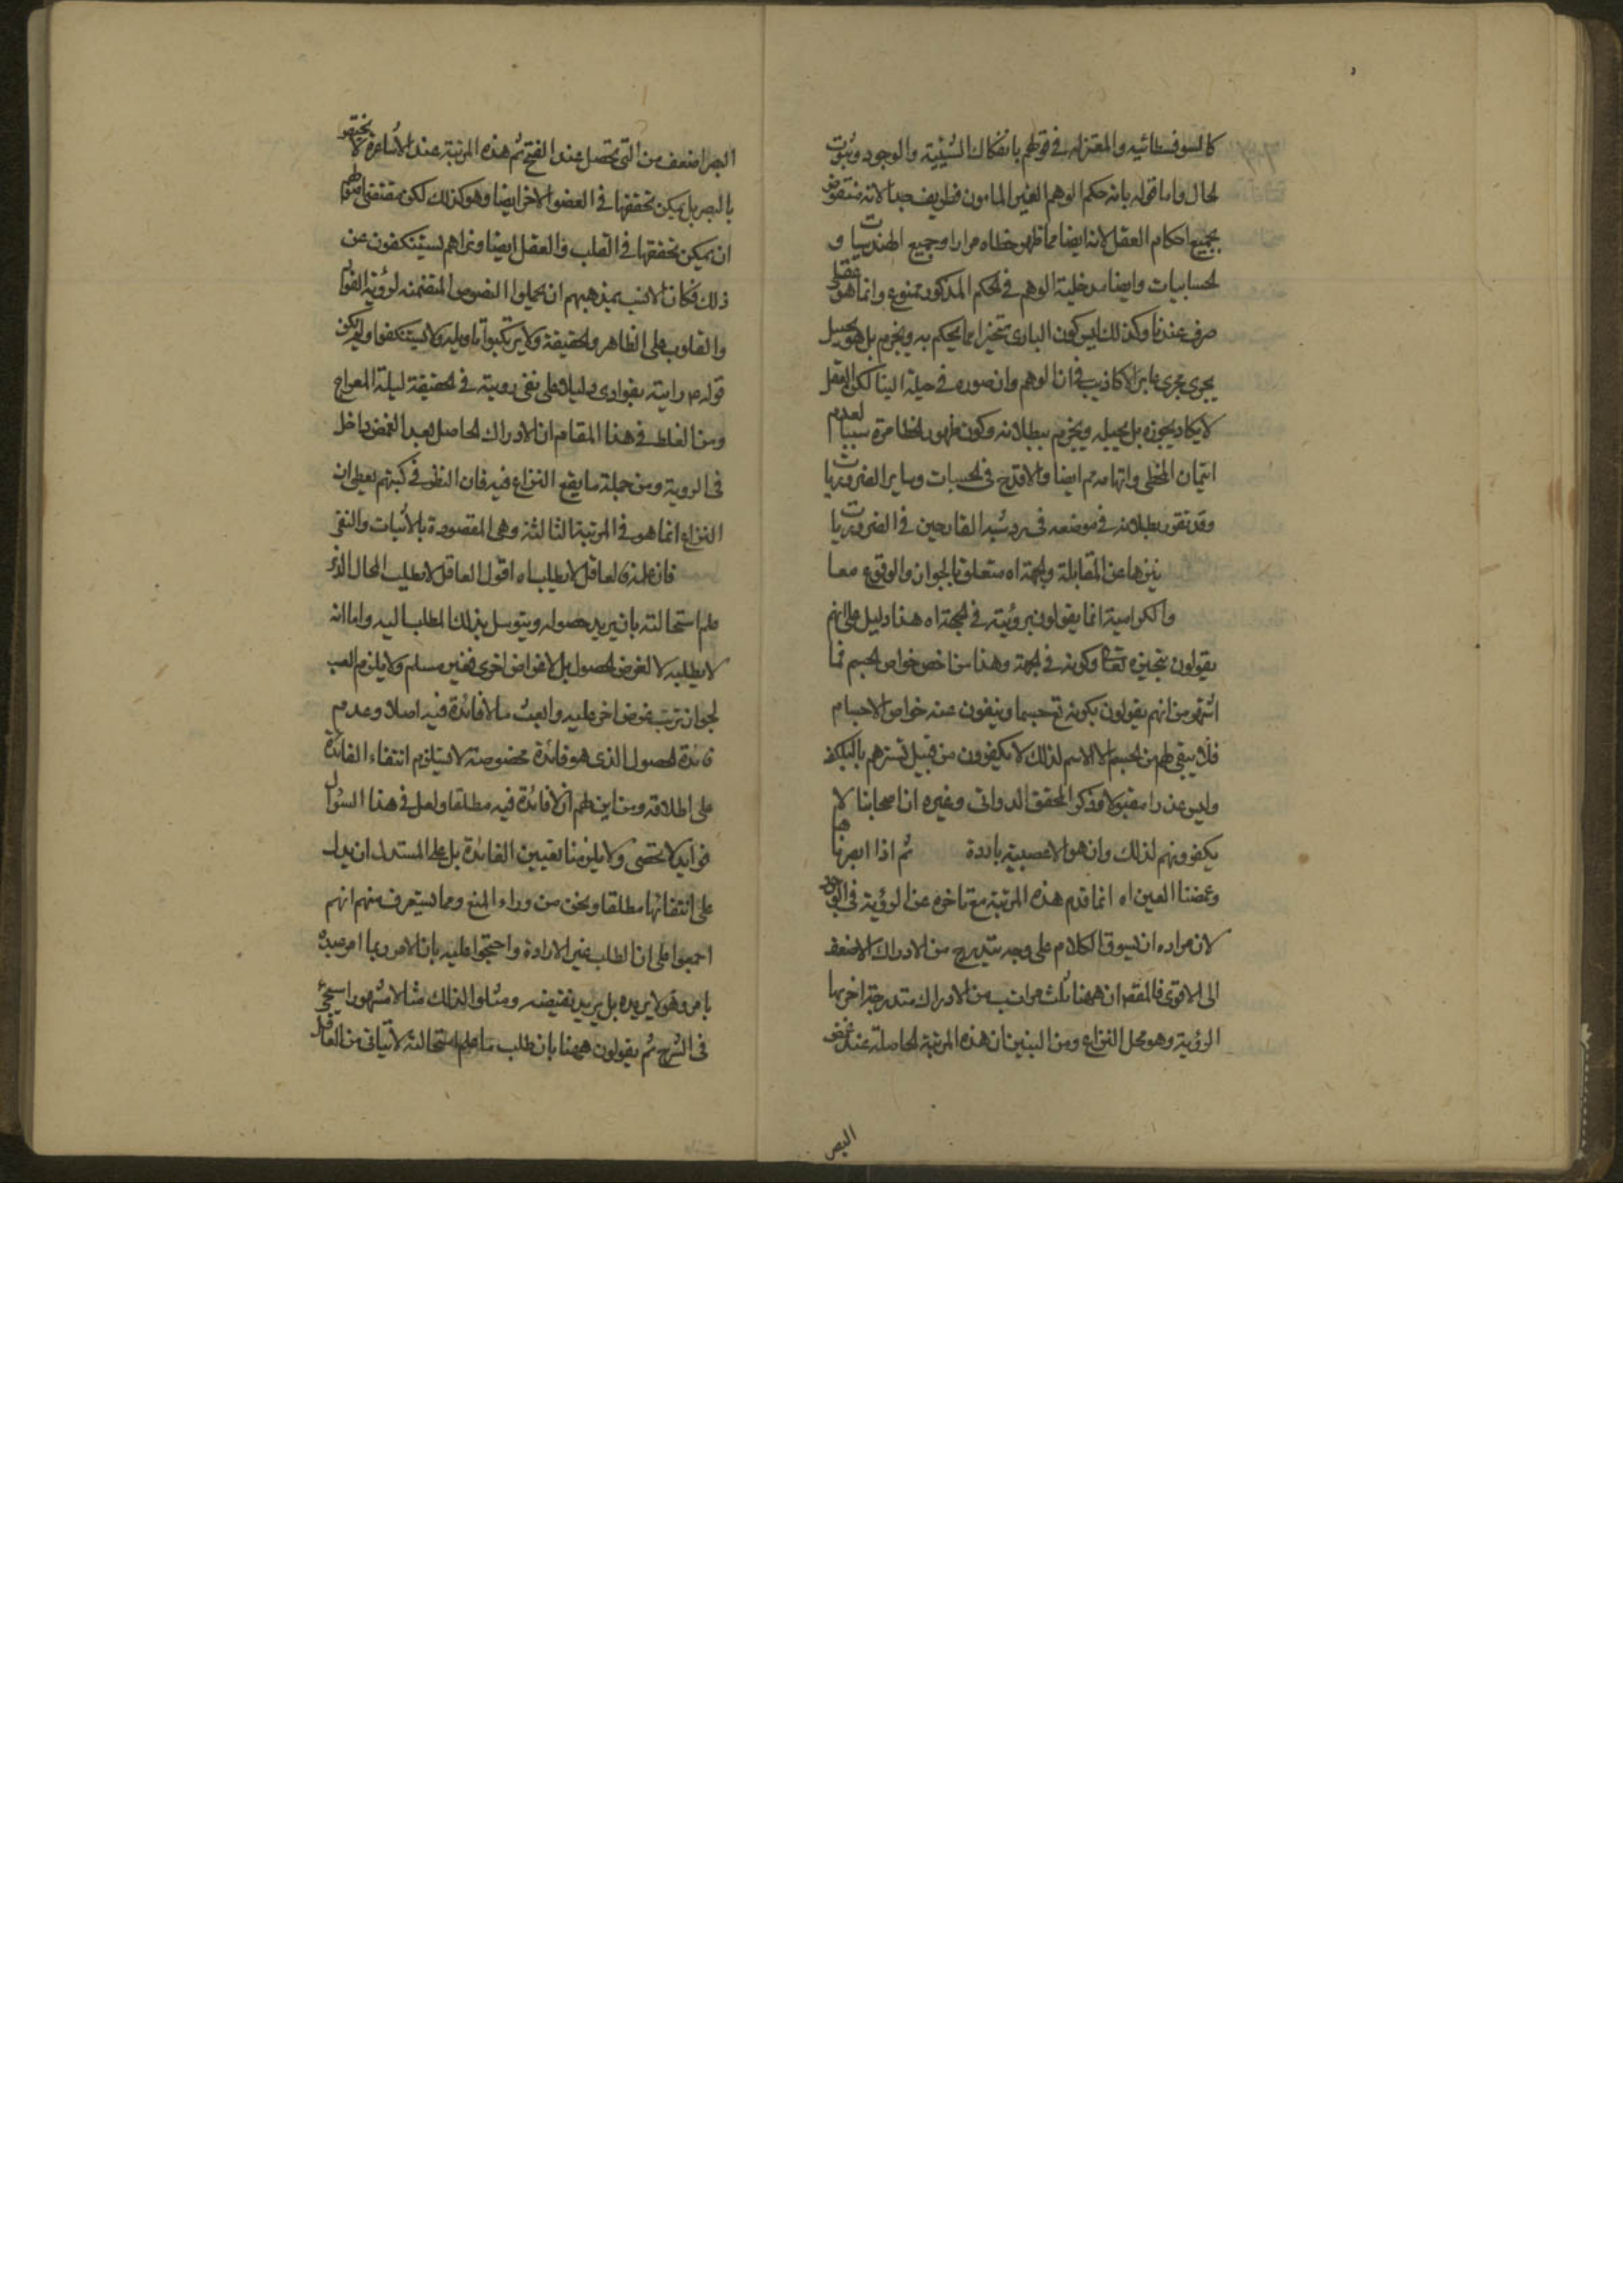 كالسوفسطائيه والمعتزله في قولهم بانفكاك الشيئية والوجود وثبوت
الحال واما قوله بانه حكم الوهم الغير المامون فظريف جدا لانه منقوض
بجميع احكام العقل لانه ايضا مما ظهر خطاه مرارا وجميع الهندسيات و
الحسابيات وايضا مدخلية الوهم في الحكم المذكور ممنوع وانما هو عقلي
صرف عندنا وكذلك ليس كون البارى متحيزا مما يحكم به ويجزم بل هو تخييل
يجرى مجرى ساير الاكاذيب في ان الوهم وان صوره في حيلة الينا لكن العقل
لا يكاد يجوزه بل يحيله ويجزم ببطلانه وكون ظهور الخطا مرة سببا لعدم
ايتمان المخطى واتهامه ثم ايضا والا قدح في الحسيات وساير الضروريات
وقد تقرر بطلانه في موضعه في رد شبه القادحين في الضروريات
ينزهها عن المقابلة والجهة اه متعلق بالجواز والوقوع معا
والكرامية انما يقولون برؤيته في الجهة اه هذا دليل على انهم
يقولون بتحيزه تعالى وكونه في الجهة وهذا من اخص خواص الجسم فما
اشتهر من انهم يقولون بكونه تع جسما وينفون عنه خواص الاجسام
فلا يبقى لهم من الجسم الا الاسم لذلك لا يكفرون من قبيل تسترهم بالبلكفة
وليس عذرا مقبولا وذكر المحقق الدوانى وغيره ان اصحابنا لا
يكفرونهم لذلك وان هو الا عصبية باردة ثم اذا ابصرناها
وغمضنا العين اه انما قدم هذه المرتبة مع تاخره عن الرؤية في الوجود
لان مراده ان يسوق الكلام على وجه يتدرج من الادراك الاضعف
الى الاقوى فالمقصر ان ههنا ثلث مراتب من الادراك متدرجة اخريها
الرؤية وهو محل النزاع ومن البين ان هذه المرتبة الحاصلة عند غمض
البصر
البصر اضعف من التى تحصل عند الفتح ثم هذه المرتبة عند الاشاعرة لا يختص
بالبصر بل يمكن تحققها في العضو الاخر ايضا وهو كذلك لكن مقتضى اصولهم
ان يمكن تحققها في القلب والعقل ايضا ونراهم يستنكفون عن
ذلك فكان الانسب بمذهبهم ان يحملوا النصوص المتضمنه لرؤية الفؤاد
والقلوب على الظاهر والحقيقة ولا يرتكبوا تاويله ولا يستنكفوا ولم يكن
قوله ص رايته بفوادى دليلا على نفى رويته في الحقيقة ليلة المعراج
ومن الغلط في هذا المقام ان الادراك الحاصل بعد الغمض داخل
في الروية ومن جملة ما يقع النزاع فيه فان النظر في كتبهم يعطى ان
النزاع انما هو في المرتبة الثالثة وهى المقصودة بالاثبات والنفى
فان العاقل لا يطلب اه اقول العاقل لا يطلب المحال الذى
علم استحالته بان يريد حصوله ويتوسل بذلك الطلب اليه واما انه
لا يطلبه لا لغرض الحصول بل لاغراض اخرى فغير مسلم ولا يلزم العبث
لجواز ترتب غرض اخر عليه والعبث ما لا فائدة فيه اصلا وعدم
فائدة الحصول الذى هو فائدة مخصوصة لا يستلزم انتفاء الفائدة
على اطلاقه ومن اين لهم ان لا فائدة فيه مطلقا ولعل في هذا السؤال
فوايد لا تحصى ولا يلزمنا تعيين الفائدة بل على المستدل ان يدل
على انتفائها مطلقا ونحن من وراء المنع ومما يستغرف منهم انهم
اجمعوا على ان الطلب غير الارادة واحتجوا عليه بان الامر ربما امر عبده
بامر وهو لا يريده بل يريد نقيضه ومثلوا لذلك مثالا مشهورا سيجئ
في الشرح ثم يقولون ههنا بان طلب ما علم استحالته لا يتاتى من العاقل